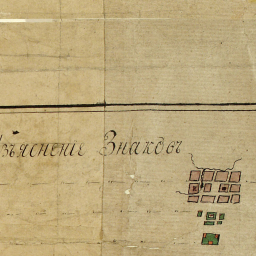 Изъясненіе Знаковъ